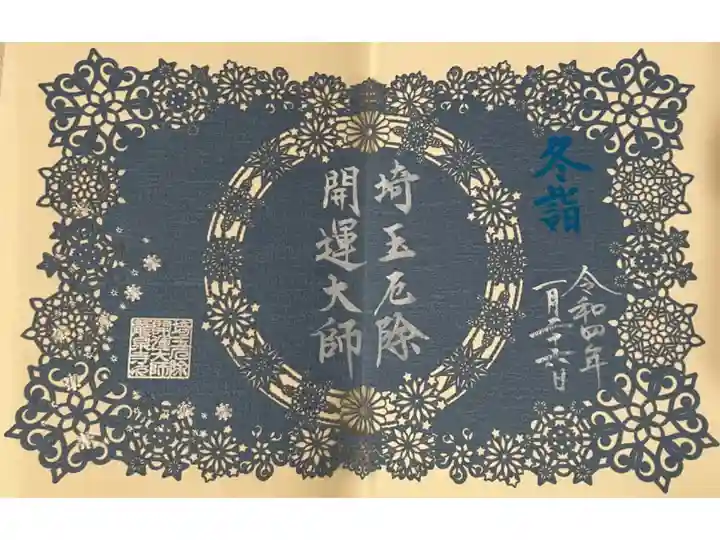 冬詣
令和四年
一月二十六日
埼玉厄除
開運大師
埼玉厄除
開運大師